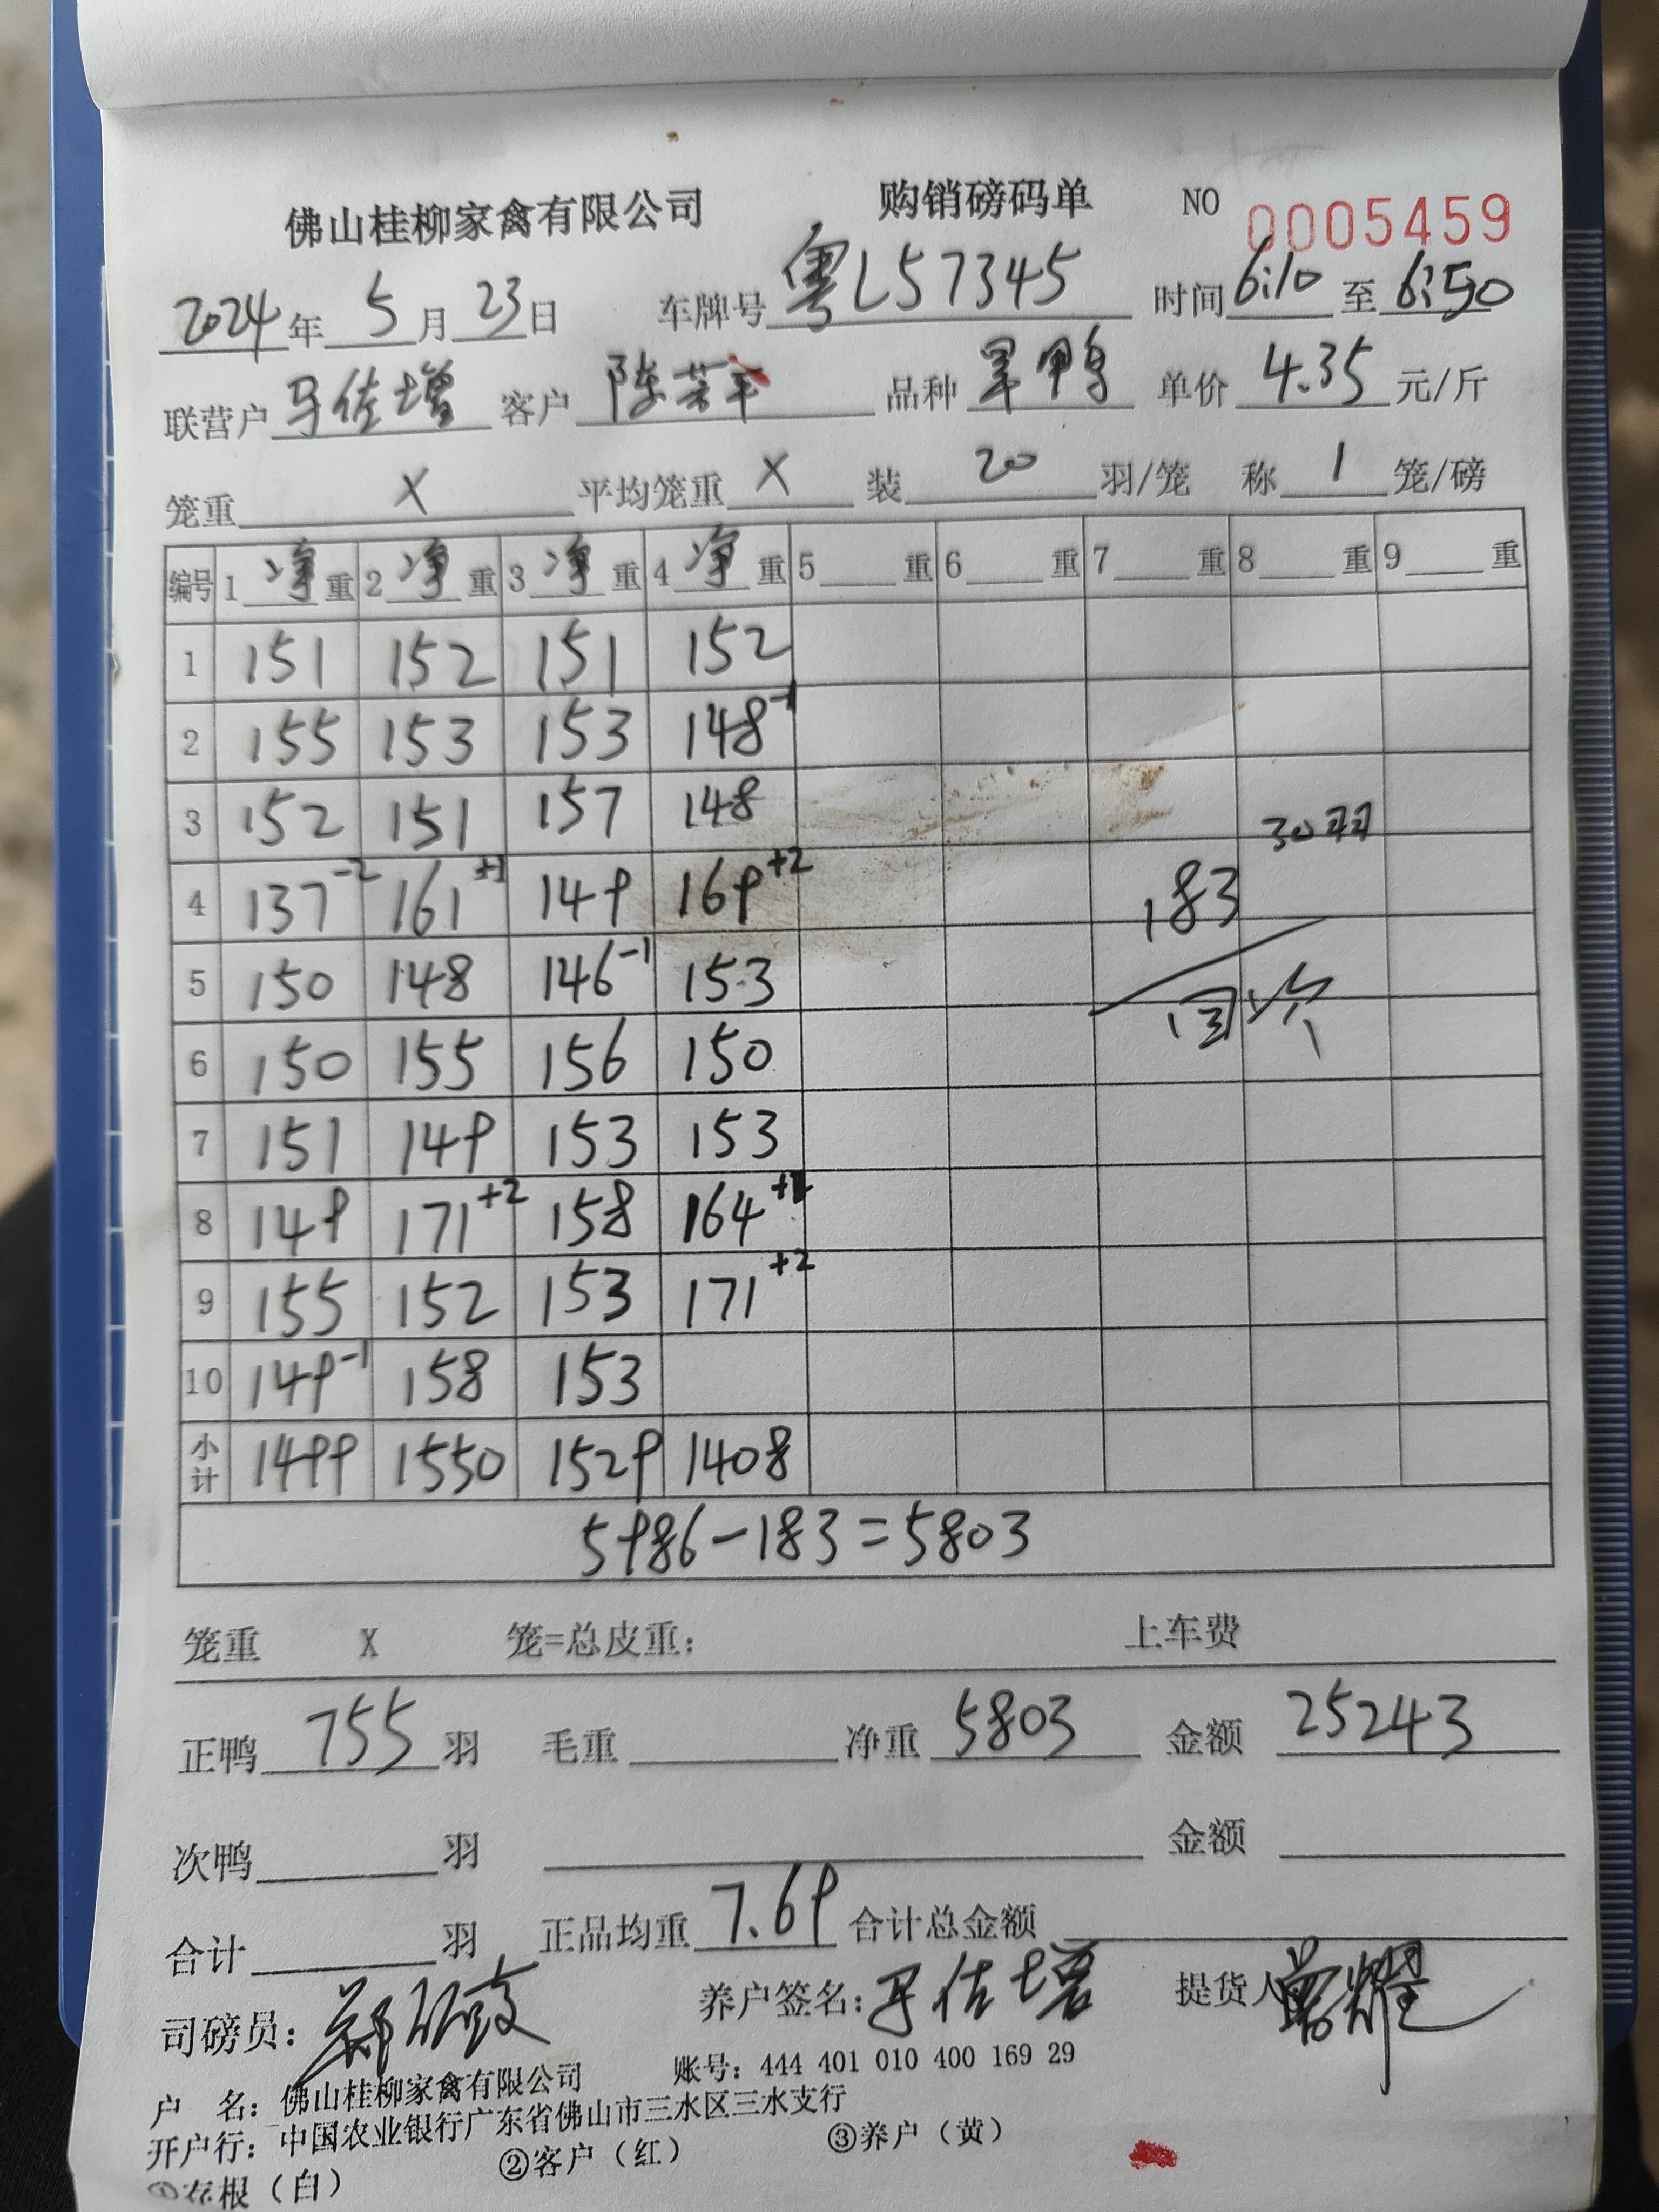 佛山桂柳家禽有限公司 购销磅码单 NO 0005459
2024年 5月 23日 车牌号 粤L57345 时间 6:10 至 6:50
联营户 马佐增 客户 陈荣 品种 旱鸭 单价 4.35 元/斤
笼重 X 平均笼重 X 装 20 羽/笼 称 1 笼/磅
编号 1 净 重 2 净 重 3 净 重 4 净 重 5 重 6 重 7 重 8 重 9 重
1 151 152 151 152
2 155 153 153 148-1
3 152 151 157 148 30羽
4 137-2 161+1 149 169+2 183
5 150 148 146-1 153 回
6 150 155 156 150
7 151 149 153 153
8 149 171+2 158 164
9 155 152 153 171+2
10 149-1 158 153
小计 1499 1550 1529 1408
5986-183=5803
笼重 X 笼=总皮重: 上车费
正鸭 755 羽 毛重 净重 5803 金额 25243
次鸭 羽 金额
合计 羽 正品均重 7.69 合计总金额
司磅员: 养户签名: 马佐增 提货人
户 名: 佛山桂柳家禽有限公司 账号: 444 401 010 400 169 29
开户行: 中国农业银行广东省佛山市三水区三水支行
①存根（白） ②客户（红） ③养户（黄）